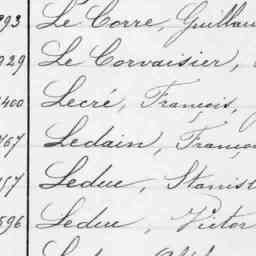 893 Le Corre, Guillau
929 Le Corvaisier,
400 Lecré, François,
467 Ledain, Françoi
157 Leduc, Stanisl
596 Leduc, Victor